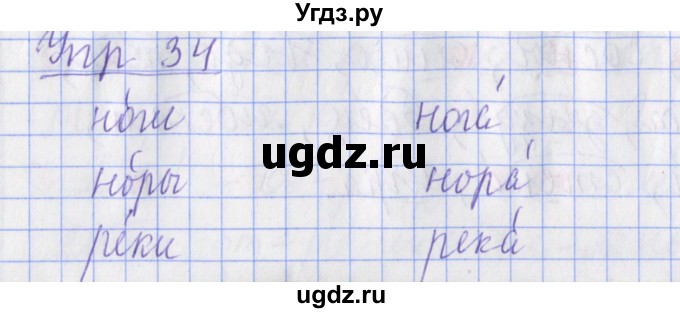 Угдз.ру
Упр 34
но́ги нога́
ugdz.ru
но́ры нора́
ре́ки река́
ugdz.ru